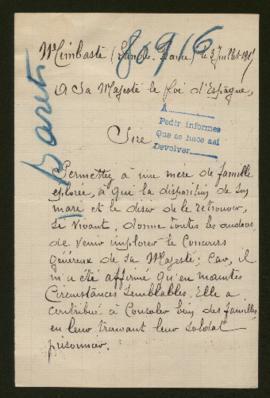 Mimbaste (Landes. France) le 3 Juillet 1917
80916
A Sa Majesté le Roi d'Espagne,
A
Pedir informes
Que se hace así
Devolver
Sire,
Permettez à une mère de famille
éplorée, à qui la disparition de son
mari et le désir de le retrouver,
le vivant, donne toutes les audaces
de venir implorer le Concours
généreux de Sa Majesté; Car, il
m'a été affirmé qu'en maintes
Circonstances semblables, Elle a
contribué à Consoler bien des familles
en leur trouvant leur Soldat
prisonnier.